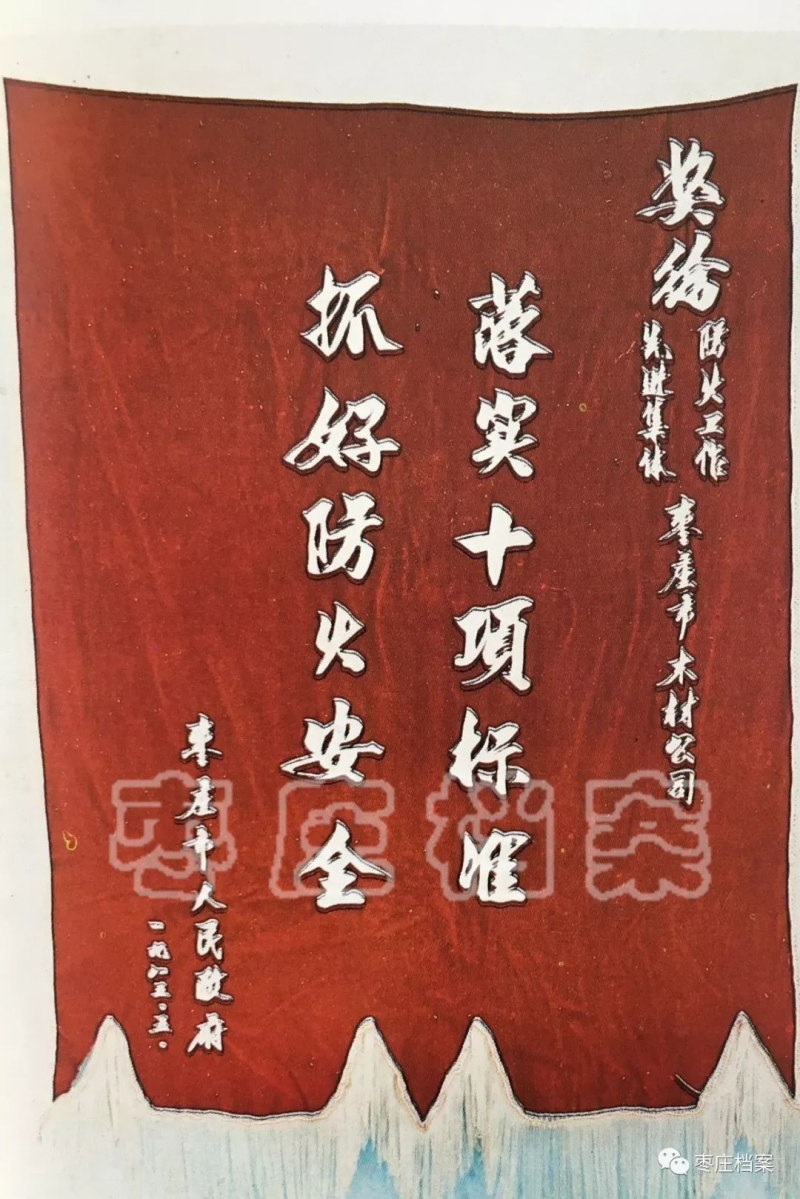 奖给
防火工作
先进集体
枣庄市木材公司
落实十項标准
抓好防火安全
枣庄市人民政府
一九八三·五·
枣庄档案
枣庄档案